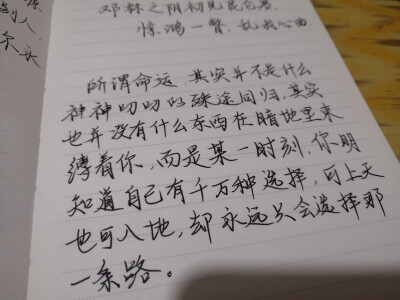 到人
尔永
邓林之阴初见昆仑君
惊鸿一瞥,乱我心曲.
所谓命运,其实并不是什么
神神叨叨的殊途同归,其实
也并没有什么东西在暗地里来
缚着你,而是某一时刻,你明
知道自己有千万种选择,可上天
也可入地,却永远只会选择那
一条路。